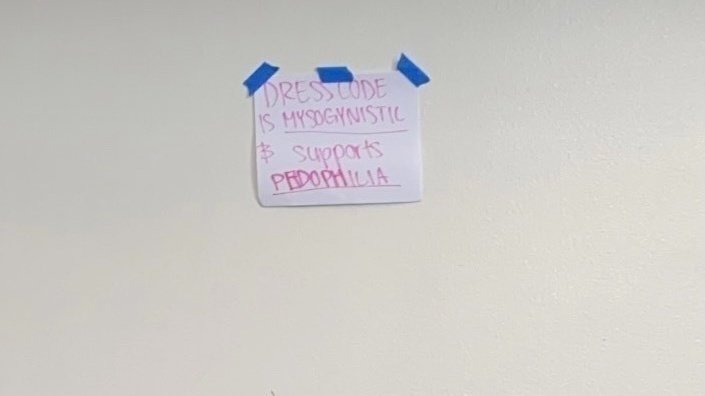 DRESS CODE
IS MYSOGYNISTIC
& supports
PEDOPHILIA